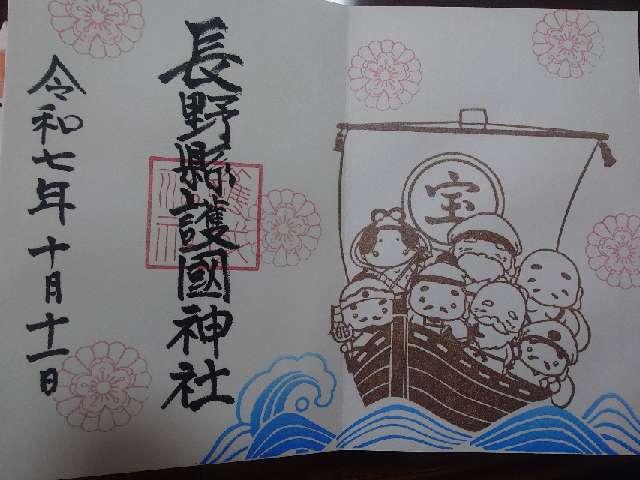 宝
長野縣護國神社
令和七年十月十一日